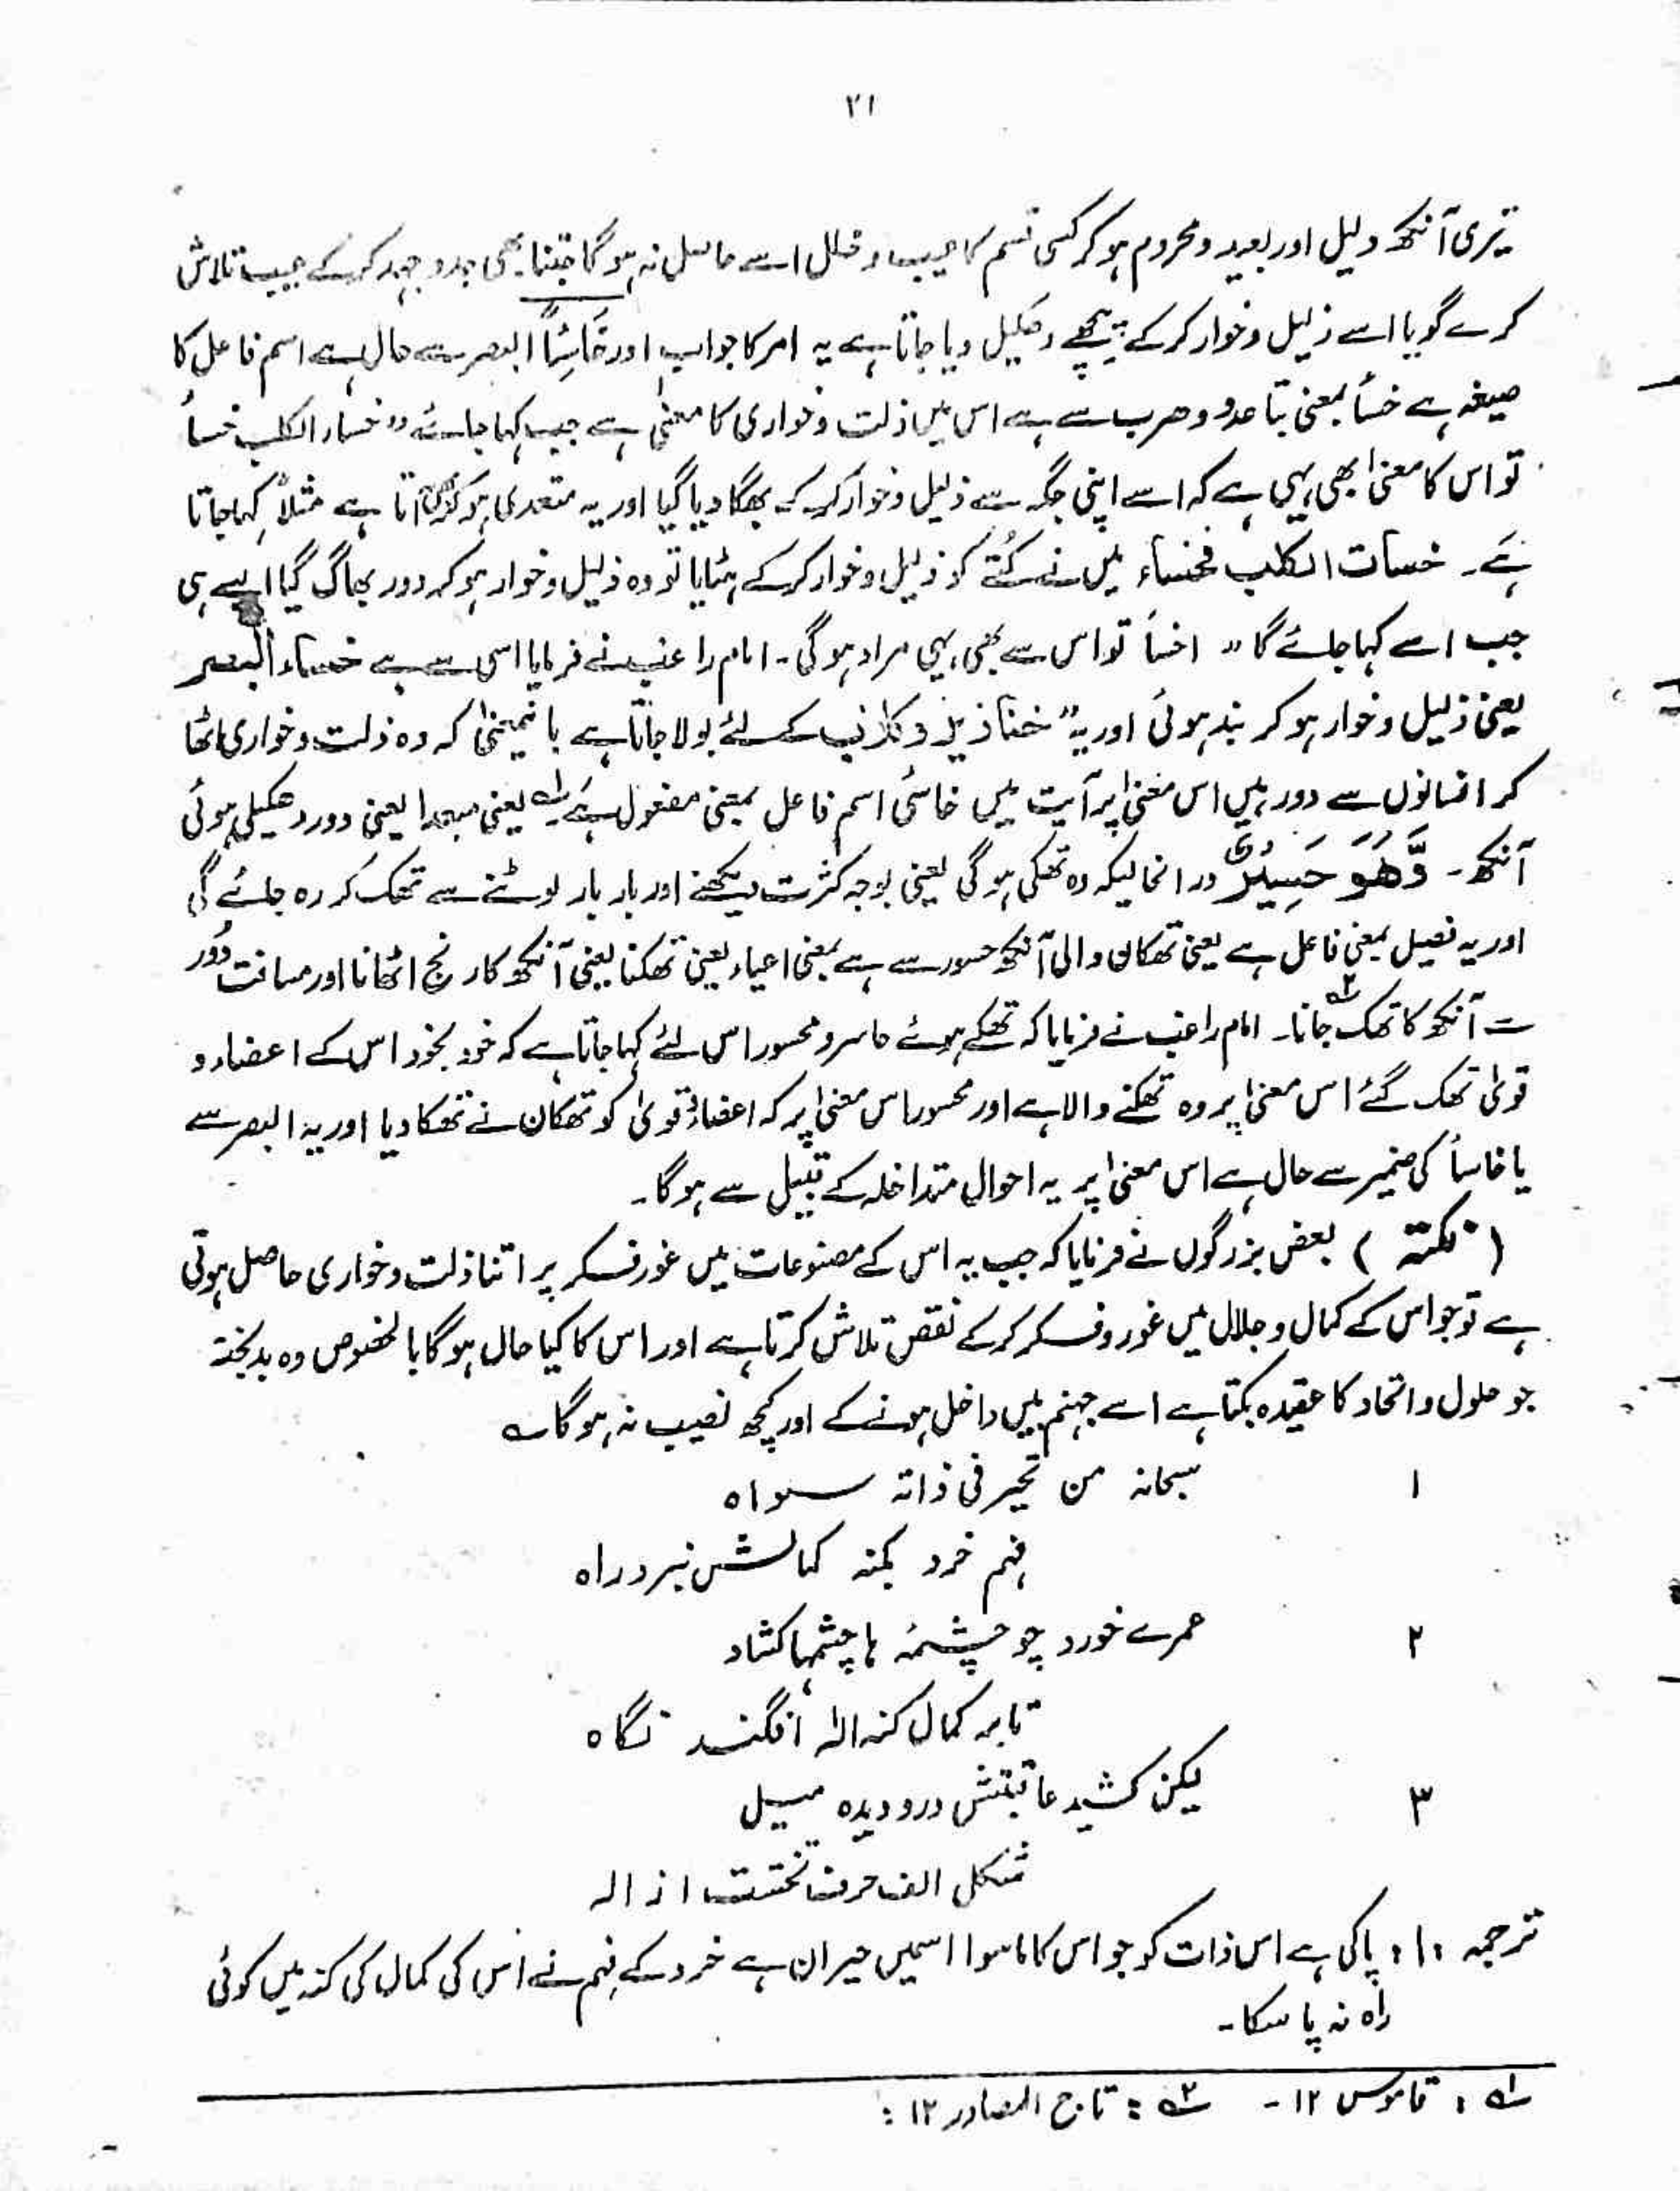 ۲۱
تیری آنکھ ذلیل اور بعید و محروم ہو کر کسی قسم کا عیب و خلل اسے حاصل نہ ہو گا جتنا بھی جدوجہد کر کے عیب تلاش
کرے گویا اسے ذلیل و خوار کر کے پیچھے دھکیل دیا جاتا ہے یہ امر کا جواب اور خَاسِئًا البصر سے حال ہے اسم فاعل کا
صیغہ ہے خسأ بمعنی تباعد و ھرب سے ہے اس میں ذلت و خواری کا معنیٰ ہے جب کہا جائے ”خساء الکلب خسأ
تو اس کا معنیٰ بھی یہی ہے کہ اسے اپنی جگہ سے ذلیل و خوار کر کے بھگا دیا گیا اور یہ متعدی ہو کر بھی آتا ہے مثلاً کہا جاتا
ہے۔ خسات الکلب فخساء میں نے کُتّے کو ذلیل و خوار کر کے ہٹایا تو وہ ذلیل و خوار ہو کر دور بھاگ گیا ایسے ہی
جب اسے کہا جائے گا ” اخسأ تو اس سے بھی یہی مراد ہو گی۔ امام راغب نے فرمایا اسی سے ہے خساء البصر
یعنی ذلیل و خوار ہو کر بند ہوئی اور یہ ” خنازیر و کلاب کے لئے بولا جاتا ہے بایمعنیٰ کہ وہ ذلت و خواری اٹھا
کر انسانوں سے دور ہیں اس معنیٰ پر آیت میں خاسئی اسم فاعل بمعنی مفعول ہے ؎۱ یعنی مبعدا یعنی دور دھکیلی ہوئی
آنکھ۔ وَّھُوَ حَسِیْرٌ درانحالیکہ وہ تھکی ہو گی یعنی بوجہ کثرت دیکھنے اور بار بار لوٹنے سے تھک کر رہ جائے گی
اور یہ فعیل بمعنی فاعل ہے یعنی تھکان والی آنکھ حسور سے ہے بمعنی اعیاء یعنی تھکنا یعنی آنکھ کا رنج اٹھانا اور مسافت دُور
سے آنکھ کا تھک ؎۲ جانا۔ امام راغب نے فرمایا کہ تھکے ہوئے حاسر و محسور اس لئے کہا جاتا ہے کہ خود بخود اس کے اعضاء و
قویٰ تھک گئے اس معنیٰ پر وہ تھکنے والا ہے اور محسور اس معنیٰ پر کہ اعضاء و قویٰ کو تھکان نے تھکا دیا اور یہ البصر سے
یا خاسأ کی ضمیر سے حال ہے اس معنیٰ پر یہ احوال متداخلہ کے قبیل سے ہو گا۔
( نکتہ ) بعض بزرگوں نے فرمایا کہ جب یہ اس کے مصنوعات میں غور فکر پر اتنا ذلت و خواری حاصل ہوتی
ہے تو جو اس کے کمال و جلال میں غور و فکر کر کے نقص تلاش کرتا ہے اور اس کا کیا حال ہو گا بالخصوص وہ بدبختہ
جو حلول و اتحاد کا عقیدہ بکتا ہے اسے جہنم میں داخل ہونے کے اور کچھ نصیب نہ ہو گا ؎
۱ سبحانہ من تحیر فی ذاتہ سواہ
فہم خرد بکنہ کمالش نبرد راہ
۲ عمرے خورد چو چشمہ ہا چشمہا کشاد
تا بہ کمال کنہ الٰہ افگند نگاہ
۳ لیکن کشید عاقبتش درو دیدہ میل
شکل الف حرف نخست از الہ
ترجمہ ۱: پاکی ہے اس ذات کو جو اس کا ماسوا اسمیں حیران ہے خرد کے فہم نے اس کی کمال کی کنہ میں کوئی
راہ نہ پا سکا۔
؎۱ : قاموس ۱۲۔ ؎۲ : تاج المصادر ۱۲ :